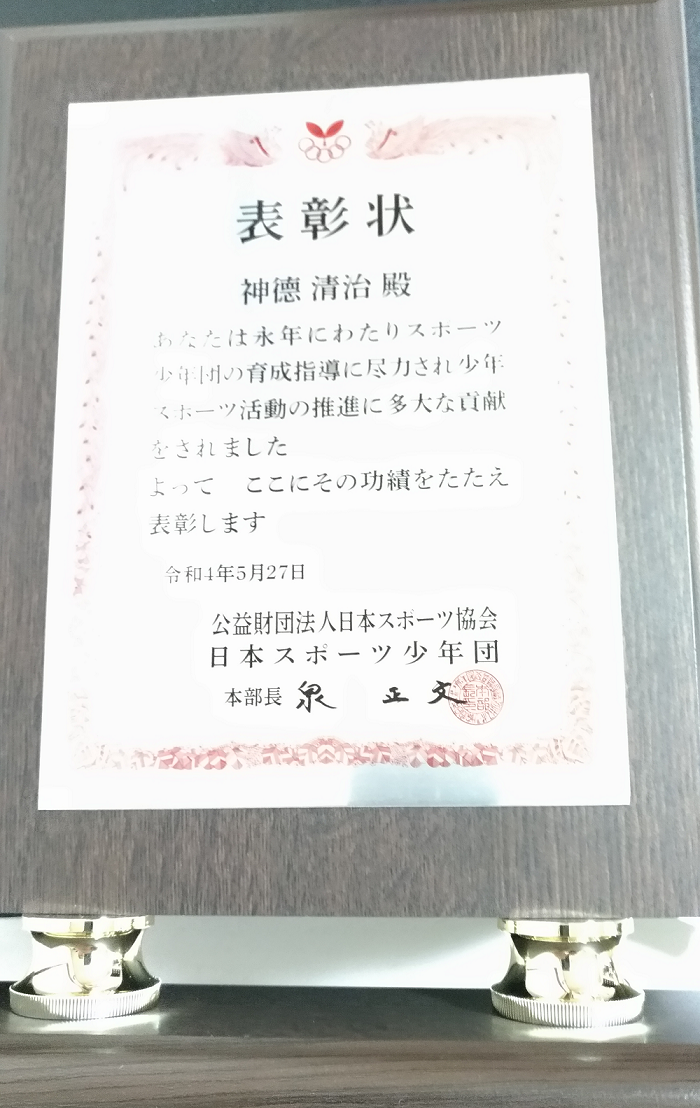 表彰状
神德 清治 殿
あなたは永年にわたりスポーツ
少年団の育成指導に尽力され少年
スポーツ活動の推進に多大な貢献
をされました
よって　ここにその功績をたたえ
表彰します
令和4年5月27日
公益財団法人日本スポーツ協会
日本スポーツ少年団
本部長 泉 正文